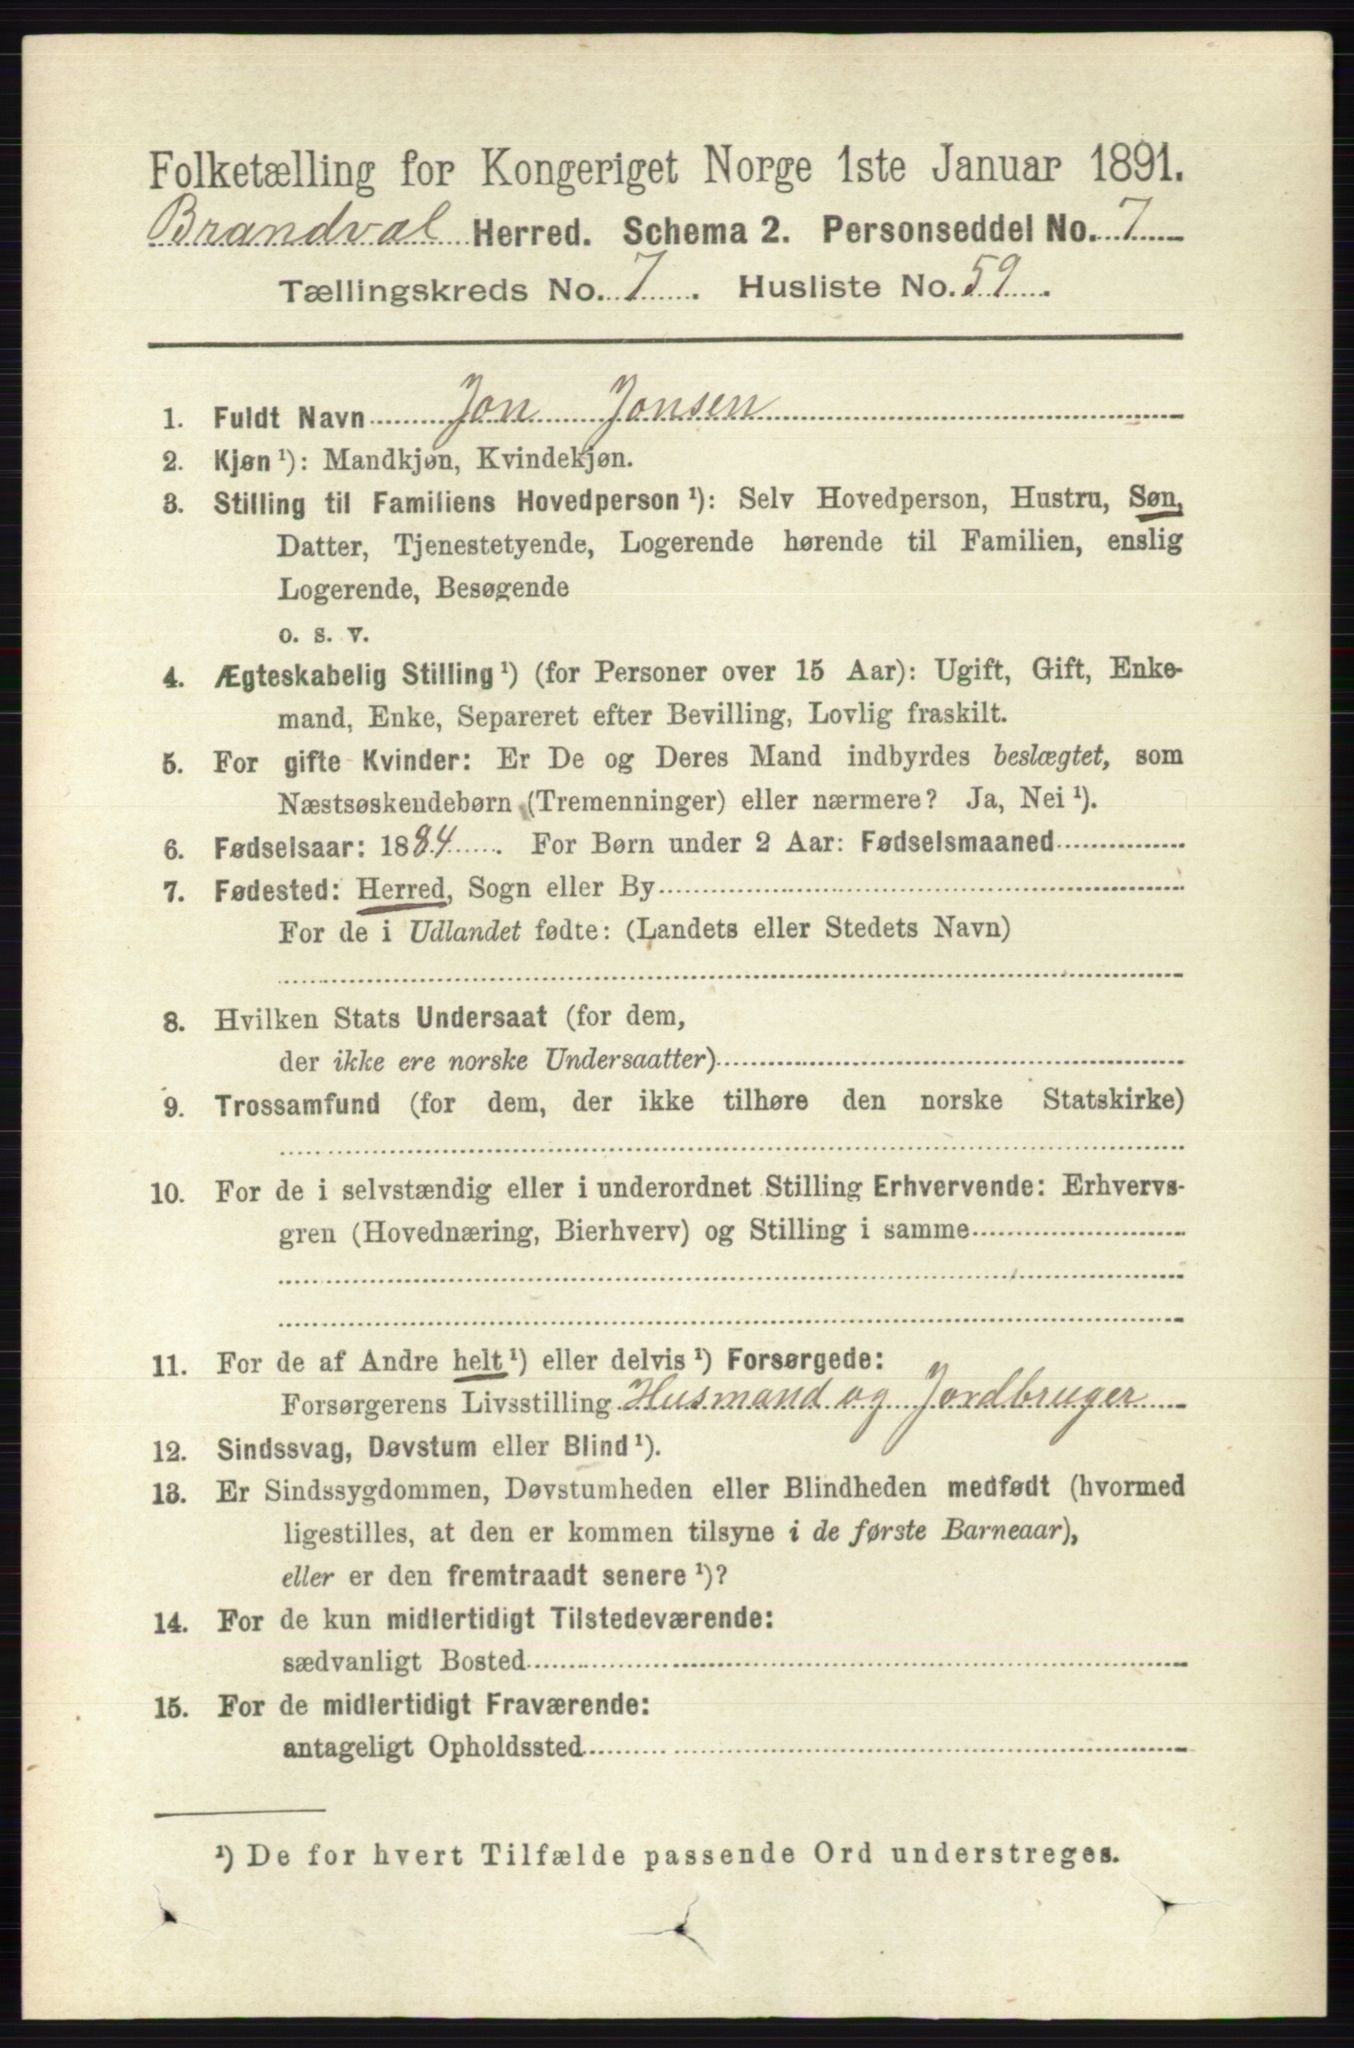 Folketælling for Kongeriget Norge 1ste Januar 1891.
Brandval Herred. Schema 2. Personseddel No. 7
Tællingskreds No. 7. Husliste No. 59.
1. Fuldt Navn Jon Jonsen
2. Kjøn ¹): Mandkjøn, Kvindekjøn.
3. Stilling til Familiens Hovedperson ¹): Selv Hovedperson, Hustru, Søn,
Datter, Tjenestetyende, Logerende hørende til Familien, enslig
Logerende, Besøgende
o. s. v.
4. Ægteskabelig Stilling ¹) (for Personer over 15 Aar): Ugift, Gift, Enke-
mand, Enke, Separeret efter Bevilling, Lovlig fraskilt.
5. For gifte Kvinder: Er De og Deres Mand indbyrdes beslægtet, som
Næstsøskendebørn (Tremenninger) eller nærmere? Ja, Nei ¹).
6. Fødselsaar: 1884. For Børn under 2 Aar: Fødselsmaaned
7. Fødested: Herred, Sogn eller By
For de i Udlandet fødte: (Landets eller Stedets Navn)
8. Hvilken Stats Undersaat (for dem,
der ikke ere norske Undersaatter)
9. Trossamfund (for dem, der ikke tilhøre den norske Statskirke)
10. For de i selvstændig eller i underordnet Stilling Erhvervende: Erhvervs-
gren (Hovednæring, Bierhverv) og Stilling i samme
11. For de af Andre helt ¹) eller delvis ¹) Forsørgede:
Forsørgerens Livsstilling Husmand og Jordbruger
12. Sindssvag, Døvstum eller Blind ¹).
13. Er Sindssygdommen, Døvstumheden eller Blindheden medfødt (hvormed
ligestilles, at den er kommen tilsyne i de første Barneaar),
eller er den fremtraadt senere ¹)?
14. For de kun midlertidigt Tilstedeværende:
sædvanligt Bosted
15. For de midlertidigt Fraværende:
antageligt Opholdssted
¹) De for hvert Tilfælde passende Ord understreges.